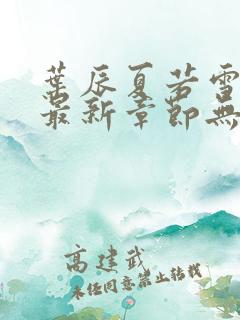 葉辰夏若雪
最新章節無
高建武
未經同意禁止轉載